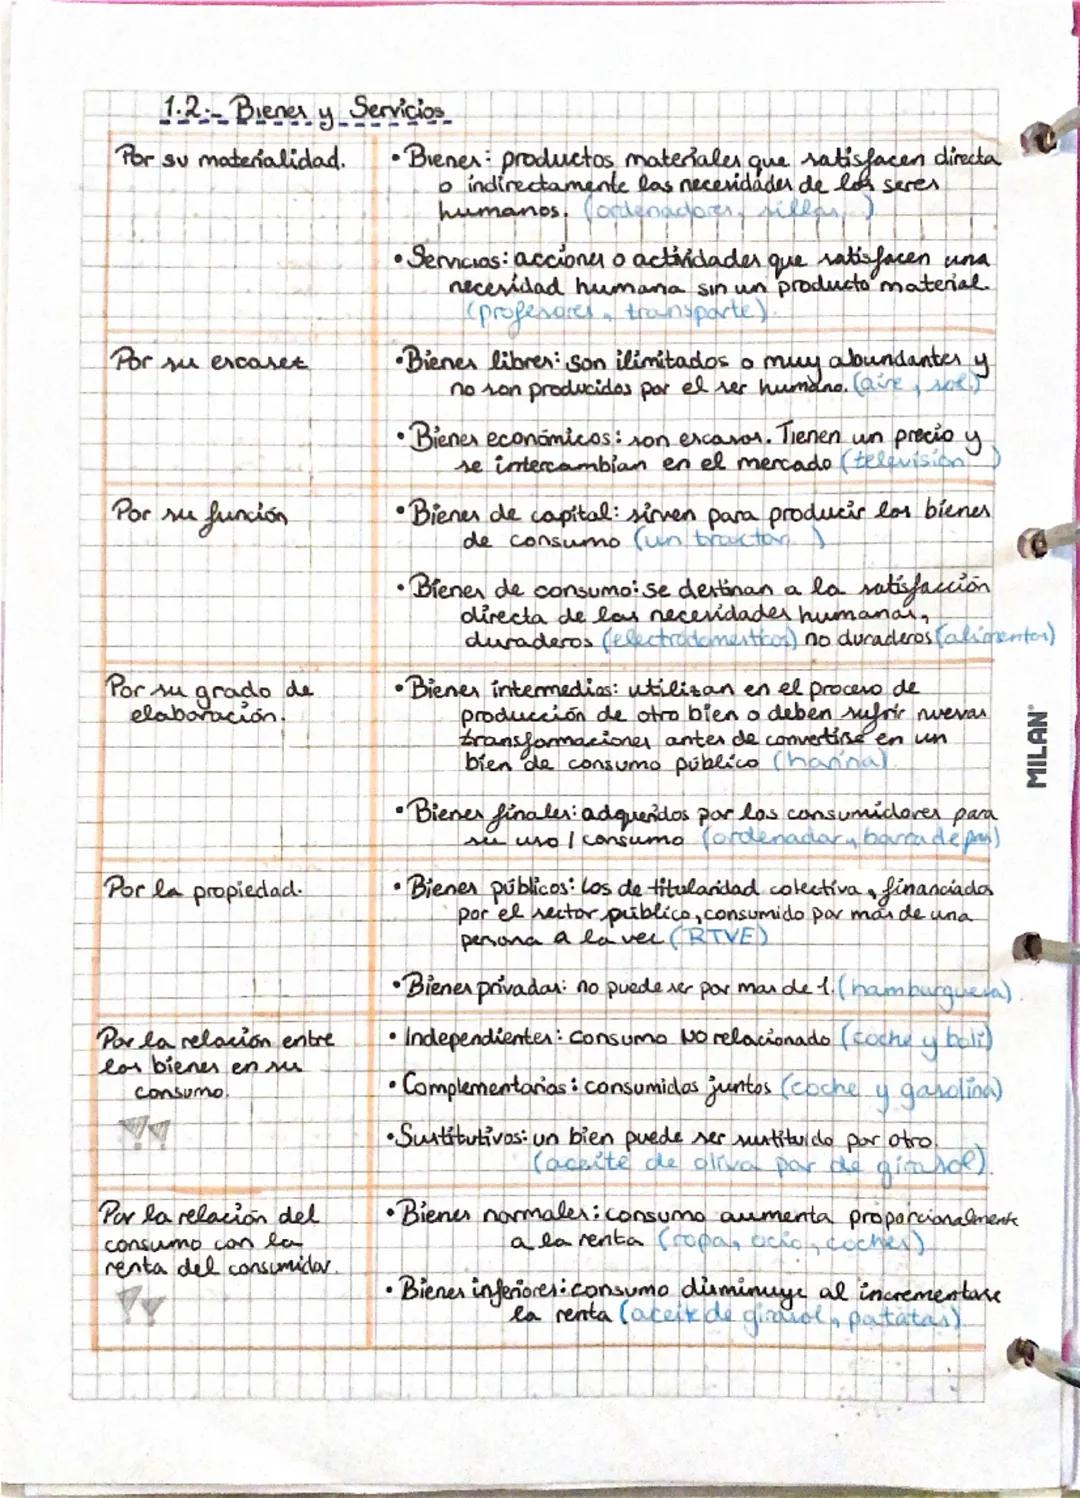 1.2.- Bienes y Servicios
Por su materialidad.
• Bienes: productos materiales que satisfacen directa
o indirectamente las necesidades de los seres
humanos. (ordenadores, sillas, )
• Servicios: acciones o actividades que satisfacen una
necesidad humana sin un producto material.
(profesores, transporte)
Por su escasez
• Bienes libres: son ilimitados o muy abundantes y
no son producidos por el ser humano. (aire, sol.)
• Bienes económicos: son escasos. Tienen un precio y
se intercambian en el mercado (televisión )
Por su función
• Bienes de capital: sirven para producir los bienes
de consumo (un tractor, )
• Bienes de consumo: se destinan a la satisfacción
directa de las necesidades humanas,
duraderos (electrodomésticos) no duraderos (alimentos)
Por su grado de
elaboración.
• Bienes intermedios: utilizan en el proceso de
producción de otro bien o deben sufrir nuevas
transformaciones antes de convertirse en un
bien de consumo público (harina)
• Bienes finales: adqueridos por los consumidores para
su uso / consumo (ordenador, barra de pan)
Por la propiedad.
• Bienes públicos: los de titularidad colectiva, financiados
por el sector público, consumido por más de una
persona a la vez (RTVE)
• Bienes privados: no puede ser por mas de 1. (hamburguesa)
Por la relación entre
los bienes en su
consumo.
• Independientes: consumo NO relacionado (coche y boli)
• Complementarios: consumidos juntos (coche y gasolina)
• Sustitutivos: un bien puede ser sustituido por otro.
(aceite de oliva por de girasol).
Por la relación del
consumo con la
renta del consumidor.
• Bienes normales: consumo aumenta proporcionalmente
a la renta (ropa, ocio, coches)
• Bienes inferiores: consumo disminuye al incrementarse
la renta (aceite de girasol, patatas)
MILAN